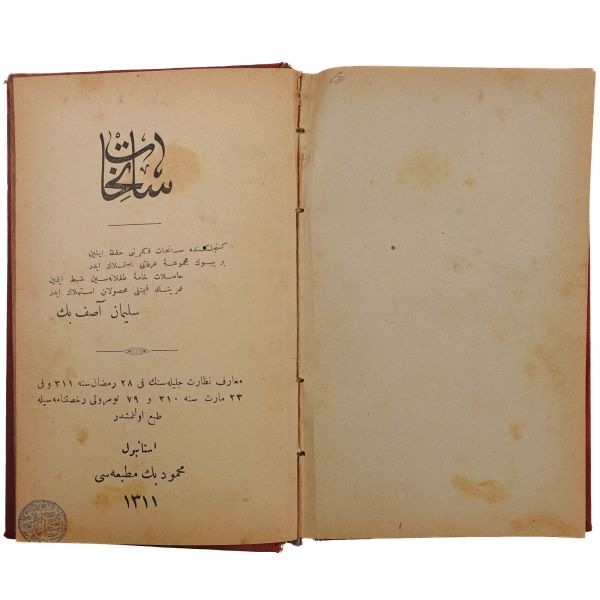 سانحات
كنجلكنده سانحات فكريني حفظ ايلين
بر بيوك مجموعهٔ عرفانى استملاك ايدر
حاصلات خامهٔ طفلانه‌سين ضبط ايتمين
عمرينك قيمتلى محصولاتن استهلاك ايدر
سليمان آصف بك
معارف نظارت جليله‌سنك فى ٢٨ رمضان سنه ٣١١ و فى
٢٣ مارت سنه ٣١٠ و ٧٩ نومرولى رخصتنامه‌سيله
طبع اولنمشدر
استانبول
محمود بك مطبعه‌سى
١٣١١